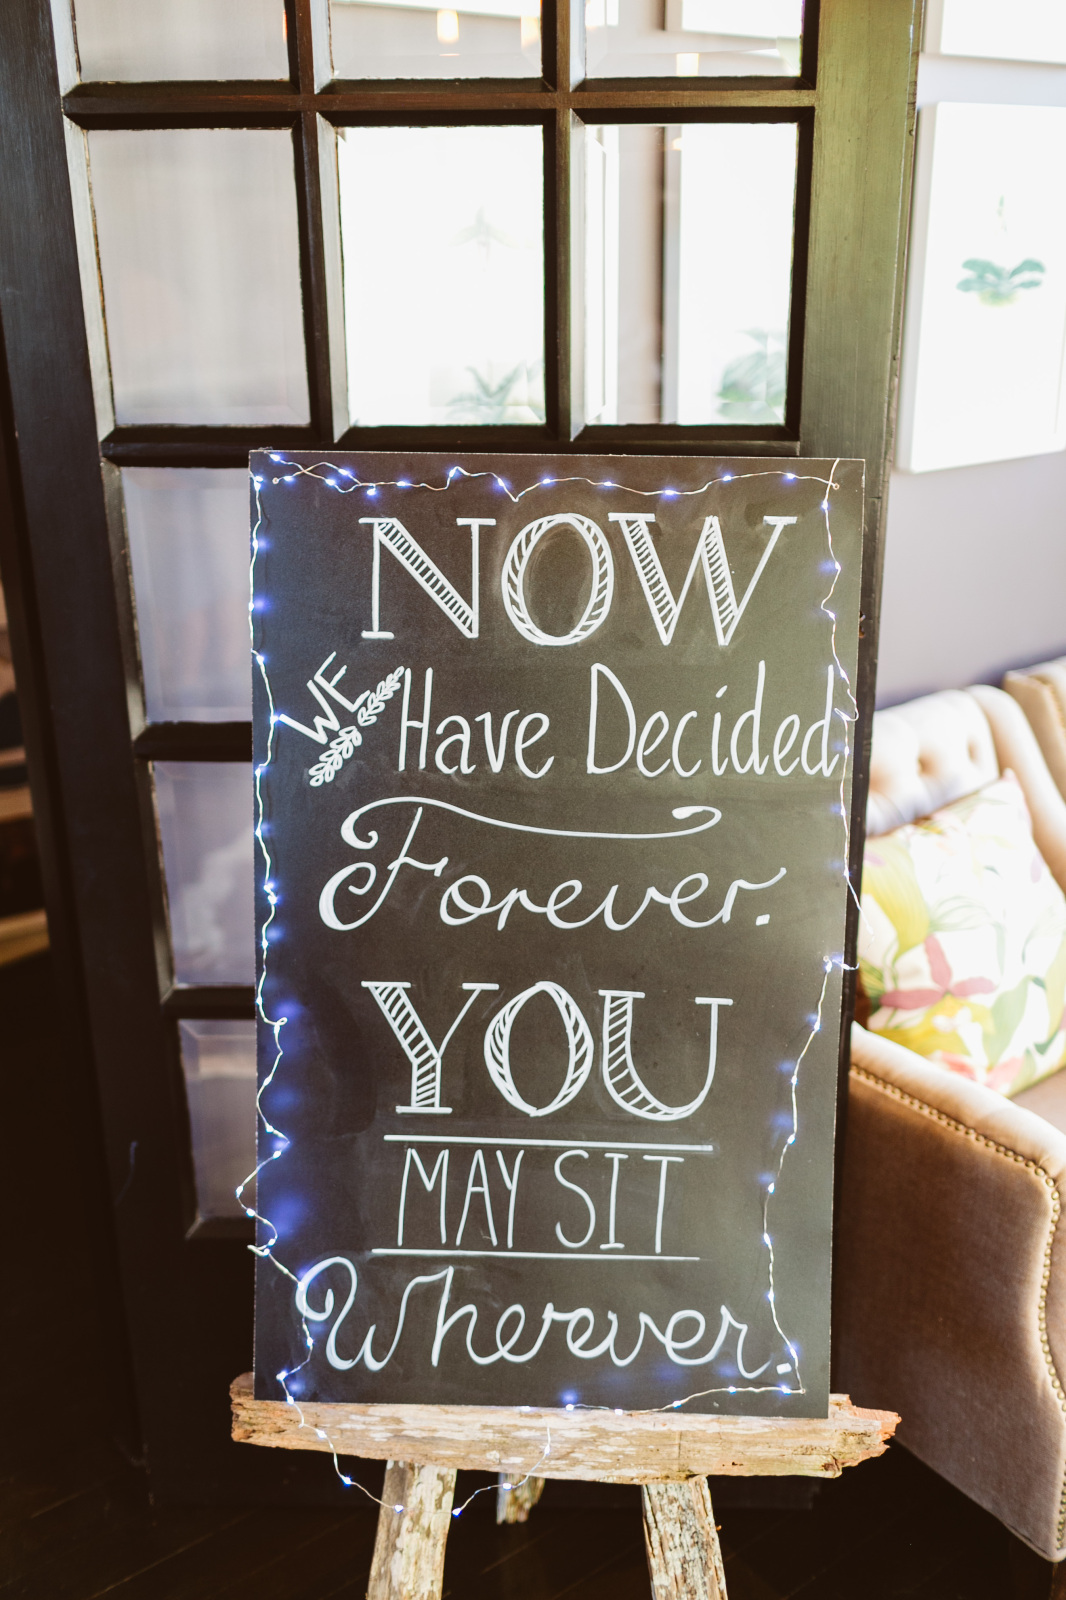 NOW
WE Have Decided
Forever.
YOU
MAY SIT
Wherever.